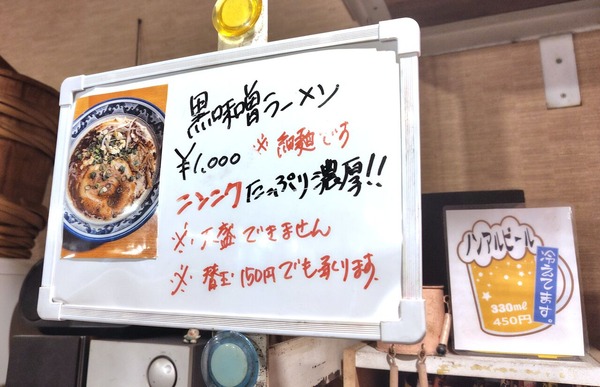 黒味噌ラーメン
¥1,000 ※細麺です
ニンニクたっぷり濃厚!!
※大盛できません
※替玉150円でも承ります。
ノンアルビール
冷えてます。
330ml
450円